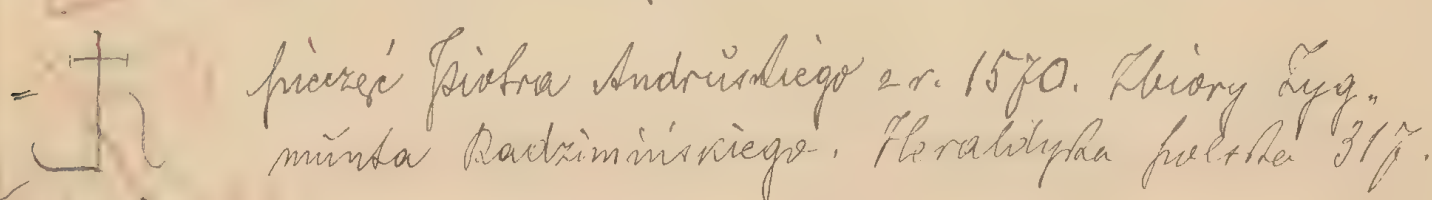 pieczęć Piotra Andruskiego z r. 1570. Zbiory Zyg„
munta Radzimińskiego. Heraldyka polska 317.